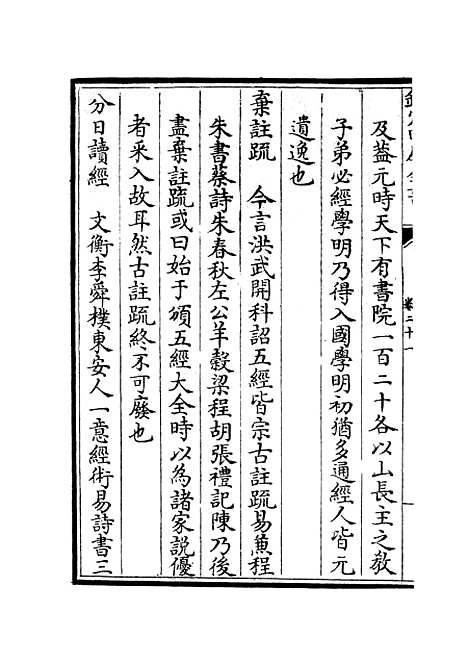 欽定四庫全書
卷二十一
及蓋元時天下有書院一百二十各以山長主之敎
子弟必經學明乃得入國學明初猶多通經人皆元
遺逸也
棄註疏　今言洪武開科詔五經皆宗古註疏易兼程
朱書蔡詩朱春秋左公羊穀梁程胡張禮記陳乃後
盡棄註疏或曰始于頒五經大全時以為諸家說優
者采入故耳然古註疏終不可廢也
分日讀經　文衡李舜樸東安人一意經術易詩書三